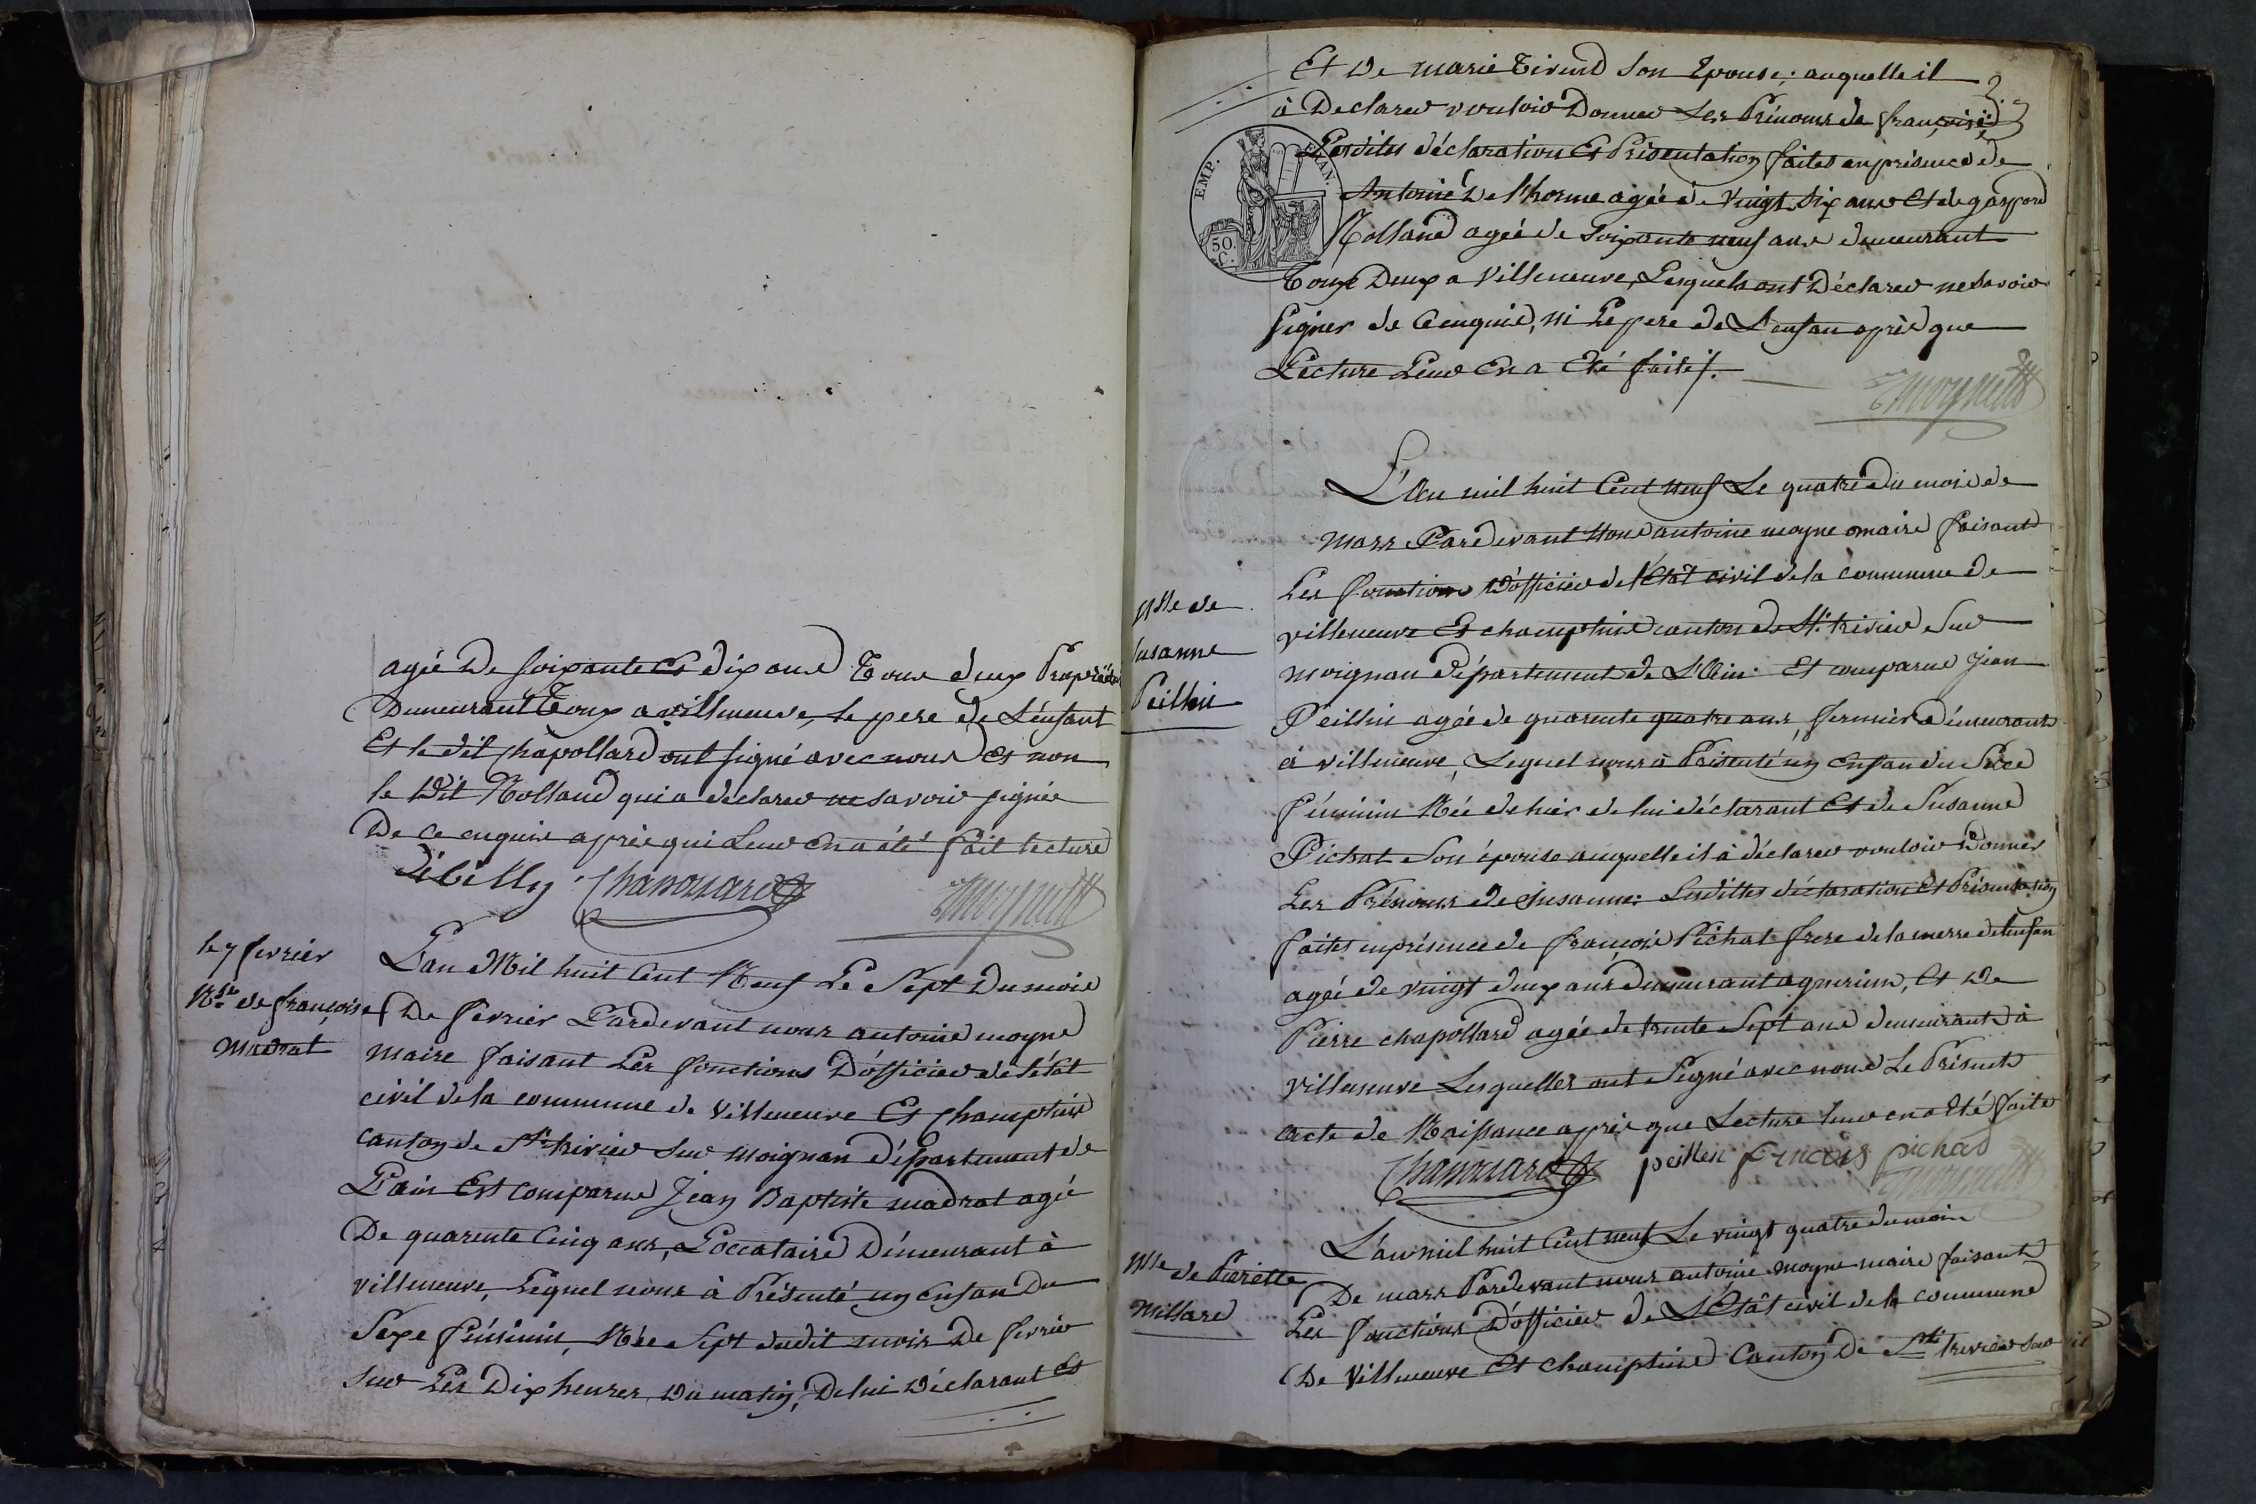 agée De soixante et dix ans Tous deux Propriét
Demeurant Toux a villeneuve, le pere de L'enfant
Et le dit Chapollard ont signé avec nous et non
le Dit Rolland qui a declarer ne savoir signée
De ce enquis après qui Leur en a été fait lecture
Chapouard
le 7 fevrier
Nce de françoise
Madrat
L'an Mil huit Cent Neuf Le Sept Du mois
De fevrier Pardevant nous antoine moyne
maire faisant Les fonctions D'officier de l'état
civil de la commune de villeneuve Et Champtein
canton de St trivier sur moignan département de
L'ain Est comparue Jean Baptiste madrat agé
De quarente Cinq ans, Loccataire Demeurant à
villeneuve, Lequel nous à Présenté un enfan Du
Sexe féminin, Née Sept dudit mois De fevrier
sur Les Dix heures du matin, De lui Déclarant Et
Et De marie son Epouse; auquelle il
à Declarer vouloir Donner Les Prénoms de françoise
EMP. FRAN.
50.
C.
Lesdites déclaration Et Présentation faites en présence de
Antoine De l'horme agée de Vingt Six ans Et de gaspard
Rolland ageé de Soixante neuf ans demeurant
Toux Deux a Villeneuve, Lesquels ont Déclarer ne Savoir
signer de Cenquis, ni Le pere de L'enfan après que
Lecture Leur En a Eté faite /.
Nce de
susanne
Peillin
L'an mil huit Cent neuf Le quatre Du mois de
mars Pardevant Nous antoine moyne maire faisant
Les fonctions D'officier de l'état civil de la commune de
villeneuve Et champtein canton de St trivier sur
moignan département de L'Ain. Et comparue Jean
Peillin agée de quarente quatre ans, fermier Demeurant
à villeneuve, Lequel nous à Présenté un enfan du Sexe
féminin Née de hier de lui déclarant Et de Susanne
Pichat Son épouse auquelle il à déclarer vouloir Donner
Les Prénoms de Susanne: Lesdittes déclaration Et Présentation
faites enprésence de françois Pichat frere de la merre de l'enfan
ageé de vingt deux ans Demeurant aguerins, Et De
Pierre chapollard agée de trente Sept ans demeurant à
villeneuve Lesquelles ont Signé avec nous Le Présent
acte de Naissance après que Lecture leur en a Eté faite
Chapouard peillen francois pichat
Nce de Pierette
Millard
L'an mil huit Cent neuf Le vingt quatre du mois
De mars Pardevant nous antoine moyne maire faisant
Les fonctions D'officier de L'état civil de la commune
De Villeneuve et champtein Canton De St trivier sur